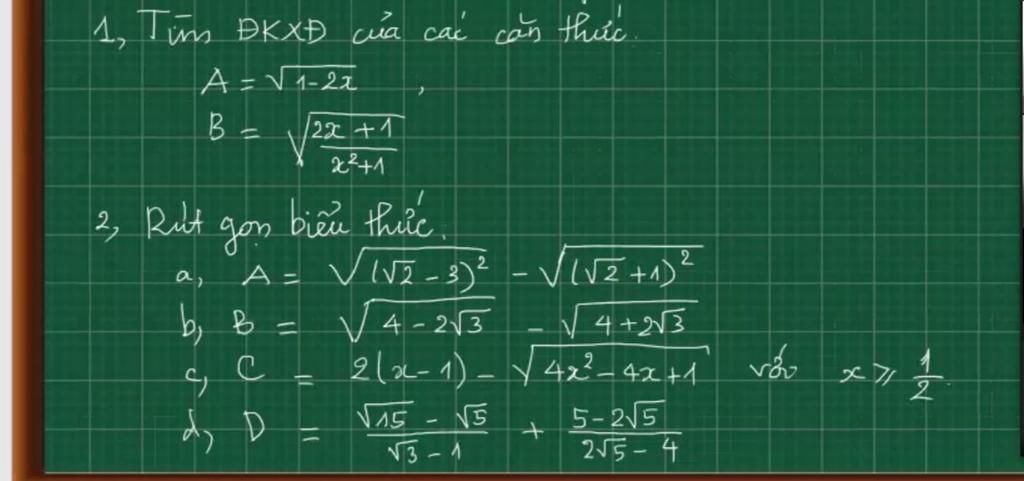 1, Tìm ĐKXĐ của các căn thức.
A = √(1-2x) ,
B = √((2x+1)/(x²+1))
2, Rút gọn biểu thức.
a, A = √((√2-3)²) - √((√2+1)²)
b, B = √(4-2√3) - √(4+2√3)
c, C = 2(x-1) - √(4x²-4x+1) với x ⩾ 1/2.
d, D = (√15-√5)/(√3-1) + (5-2√5)/(2√5-4)